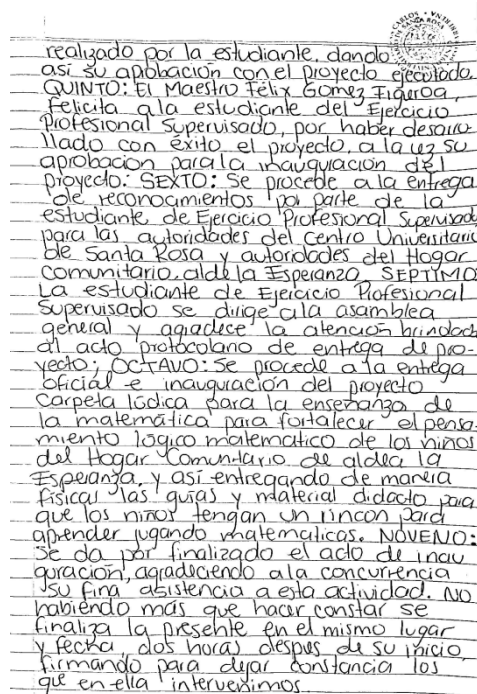 realizado por la estudiante, dando
así su aprobación con el proyecto ejecutado.
QUINTO: El Maestro Félix Gomez Figeroa,
felicita a la estudiante del Ejercicio
Profesional Supervisado, por haber desarro
llado con éxito el proyecto, a la vez su
aprobacion para la inauguracion del
proyecto. SEXTO: Se procede a la entrega
de reconocimientos por parte de la
estudiante de Ejercicio Profesional Supervisado
para las autoridades del Centro Universitario
de Santa Rosa y autoridades del Hogar
comunitario, aldea la Esperanza SEPTIMO
La estudiante de Ejercicio Profesional
Supervisado se dirige a la asamblea
general y agradece la atencion brindada
al acto protocolario de entrega de pro-
yecto; OCTAVO: Se procede a la entrega
oficial e inauguración del proyecto
Carpeta lúdica para la enseñanza de
la matemática para fortalecer el pensa-
miento lógico matematico de los niños
del Hogar Comunitario de aldea la
Esperanza, y así entregando de manera
física las guias y material didacto para
que los niños tengan un rincon para
aprender jugando matematicas. NOVENO:
Se da por finalizado el acto de inau
guración, agradeciendo a la concurrencia
su fina asistencia a esta actividad. No
habiendo más que hacer constar se
finaliza la presente en el mismo lugar
y fecha, dos horas despues de su inicio,
firmando para dejar constancia los
que en ella intervenimos